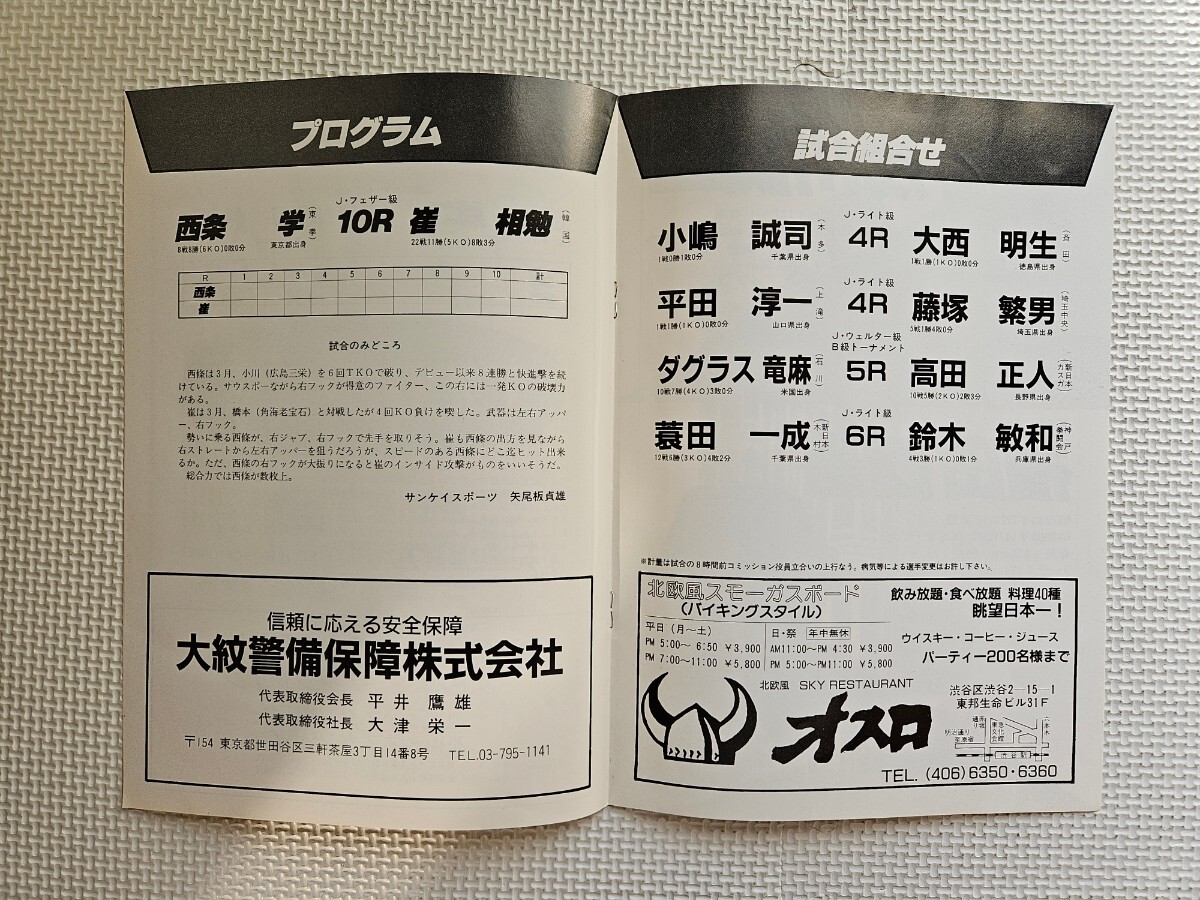 プログラム
J・フェザー級
西条 学 (東拳) 10R 崔 相勉 (韓国)
8戦8勝(6KO)0敗0分 東京都出身 22戦11勝(5KO)8敗3分
R 1 2 3 4 5 6 7 8 9 10 計
西条
崔
試合のみどころ
西條は3月、小川(広島三栄)を6回TKOで破り、デビュー以来8連勝と快進撃を続
けている。サウスポーながら右フックが得意のファイター、この右には一発KOの破壊力
がある。
崔は3月、橋本(角海老宝石)と対戦したが4回KO負けを喫した。武器は左右アッパ
ー、右フック。
勢いに乗る西條が、右ジャブ、右フックで先手を取りそう。崔も西條の出方を見ながら
右ストレートから左右アッパーを狙うだろうが、スピードのある西條にどこ迄ヒット出来
るか。ただ、西條の右フックが大振りになると崔のインサイド攻撃がものをいいそうだ。
総合力では西條が数枚上。
サンケイスポーツ 矢尾板貞雄
信頼に応える安全保障
大紋警備保障株式会社
代表取締役会長 平井鷹雄
代表取締役社長 大津栄一
〒154 東京都世田谷区三軒茶屋3丁目14番8号 TEL.03-795-1141
試合組合せ
J・ライト級
小嶋 誠司 (本多) 4R 大西 明生 (斉田)
1戦0勝1敗0分 千葉県出身 1戦1勝(1KO)0敗0分 徳島県出身
J・ライト級
平田 淳一 (上滝) 4R 藤塚 繁男 (埼玉中央)
1戦1勝(1KO)0敗0分 山口県出身 5戦1勝4敗0分 埼玉県出身
J・ウェルター級
B級トーナメント
ダグラス 竜麻 (石川) 5R 高田 正人 (新日本カスガ)
10戦7勝(4KO)3敗0分 米国出身 10戦5勝(2KO)2敗3分 長野県出身
J・ライト級
蓑田 一成 (新日本木村) 6R 鈴木 敏和 (神戸拳闘会)
12戦6勝(3KO)4敗2分 千葉県出身 4戦3勝(1KO)0敗1分 兵庫県出身
※計量は試合の8時間前コミッション役員立合いの上行なう。病気等による選手変更はお許し下さい。
北欧風スモーガスボード
(バイキングスタイル)
飲み放題・食べ放題 料理40種
眺望日本一!
平日(月〜土)
PM 5:00〜 6:50 ¥3,900
PM 7:00〜11:00 ¥5,800
日・祭 年中無休
AM11:00〜PM 4:30 ¥3,900
PM 5:00〜PM11:00 ¥5,800
ウイスキー・コーヒー・ジュース
パーティー200名様まで
北欧風 SKY RESTAURANT
オスロ
渋谷区渋谷2-15-1
東邦生命ビル31F
明治通り
至原宿
東急
文化
会館
六本木
渋谷駅
TEL. (406)6350・6360